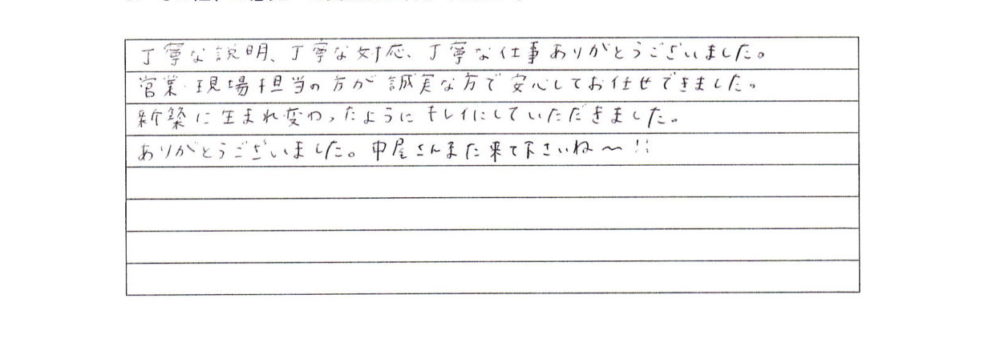 丁寧な説明、丁寧な対応、丁寧な仕事ありがとうございました。
営業・現場担当の方が誠実な方で安心してお任せできました。
新築に生まれ変わったようにキレイにしていただきました。
ありがとうございました。中屋さんまた来て下さいね〜!!